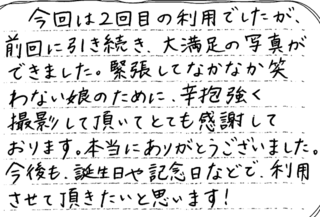 今回は2回目の利用でしたが、
前回に引き続き、大満足の写真が
できました。緊張してなかなか笑
わない娘のために、辛抱強く
撮影して頂いてとても感謝して
おります。本当にありがとうございました。
今後も、誕生日や記念日などで、利用
させて頂きたいと思います!